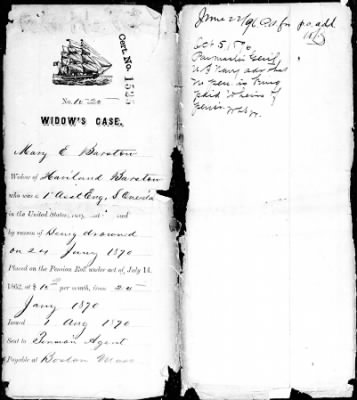 Cert. No. 1525
No. 1525
WIDOW'S CASE.
Mary E Barstow
Widow of Haviland Barstow
who was a 1st Asst Eng. S. Oneida
in the United States, and
by reason of Being drowned
on 24 Jany 1870
Placed on the Pension Roll under act of July 14,
1862, at $ 10 per month, from 25
Jany 1870
Issued 1 Aug 1870
Sent to Pension Agent
Payable at Boston Mass
June 22/96 for p.o. add
Oct 5, 1870
Paymaster Genl,
U S Navy adv that
no Pen is being
paid